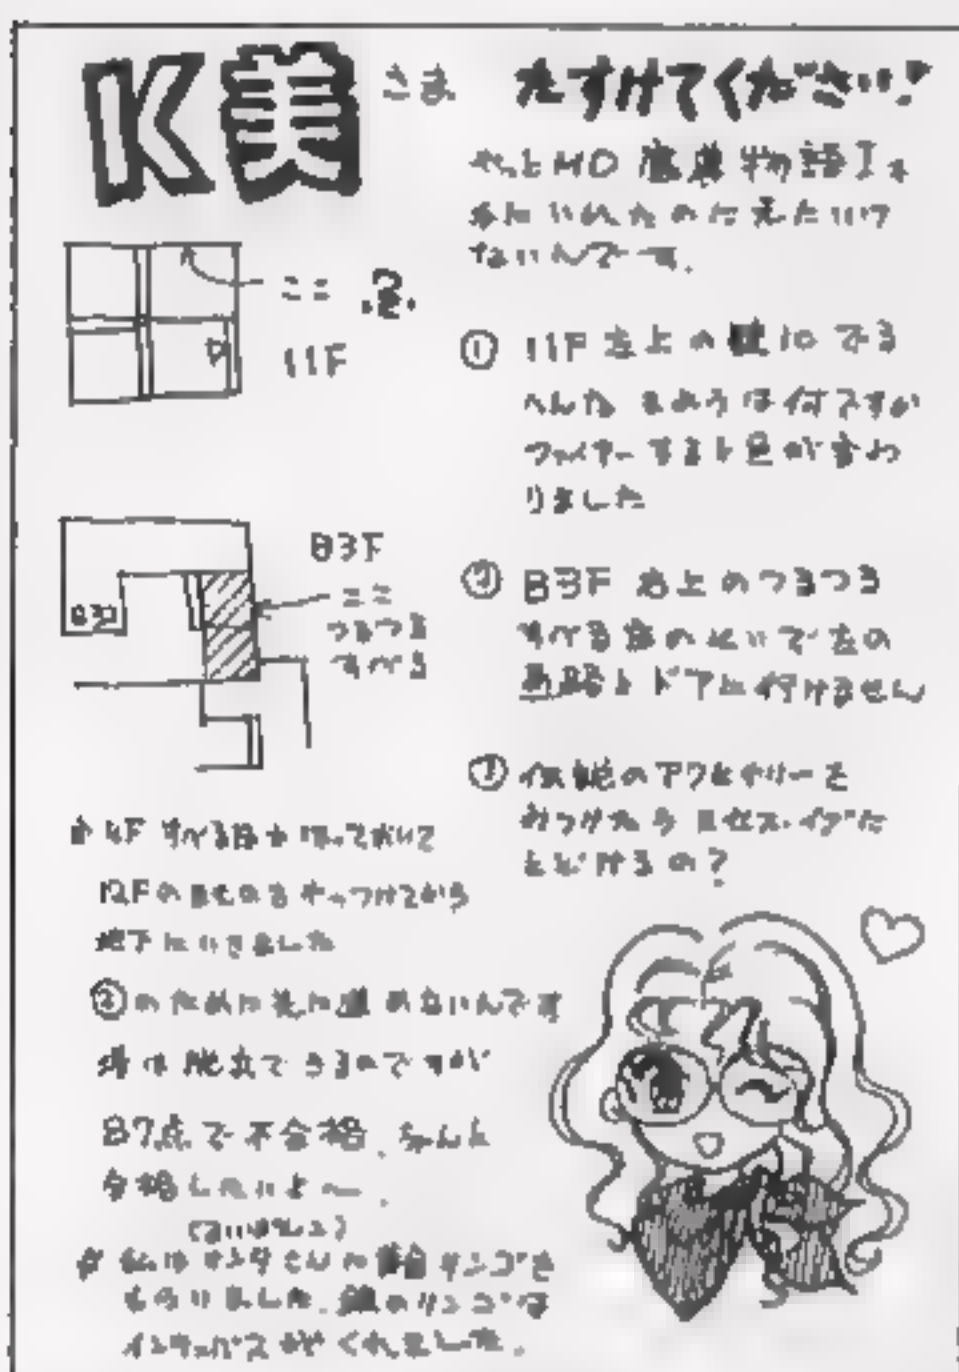 K美さま たすけてください!
やっとMD 魔導物語Ⅰを
手にいれたのに先にいけ
ないんです。
ここ?
11F
① 11F 左上の 10 でる
へんな まほうは何ですか
ファイヤーすると色が変わ
りました
B3F
ここ
つるつる
すべる
② B3F 右上のつるつる
すべる床のせいで左の
通路とドアに行けません
③ 伝説のアクセサリーを
みつけたら
とどけるの?
すべる
12Fの やっつけてから
地下にいきました
②のために先に進めないんです
塔は脱出できるのですが
87点で不合格。ちゃんと
合格したいよ〜。
私はサンタさんに リンゴを
もらいました。銀のリンゴは
インキュバスがくれました。